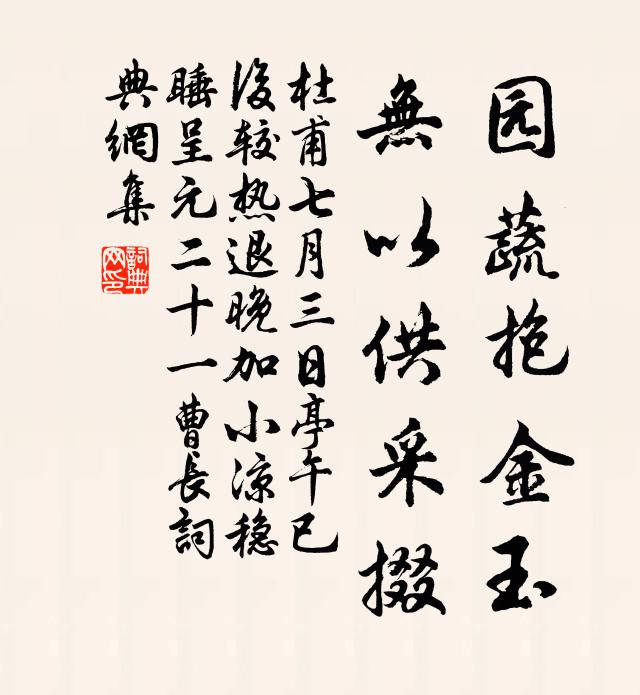 园蔬抱金玉
無以供采掇
杜甫七月三日亭午已
後较热退晚加小凉稳
睡呈元二十一曹長詞
典網集
詞典
网印